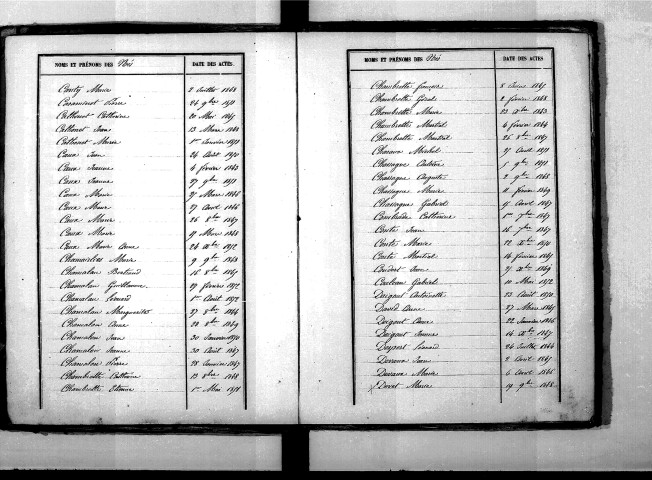 NOMS ET PRÉNOMS DES Nés DATE DES ACTES
Marie 2 Juillet 1868
Pierre 24 9bre 1871
Cathonet Catherine 20 Mai 1867
Cathonet Jean 13 Mars 1866
Cathonet Marie 1er Janvier 1871
Caux Jean 24 Août 1870
Caux Jeanne 4 février 1863
Caux Jeanne 27 9bre 1871
Caux Marie 27 Mars 1866
Caux Marie 27 Avril 1866
Caux Marie 25 8bre 1867
Caux Marie 19 Mars 1868
Caux Marie Anne 24 Xbre 1872
Marie 9 9bre 1868
Chamalon Bertrand 16 8bre 1869
Chamalon Guillaume 29 février 1872
Chamalon Léonard 1er Août 1872
Chamalon Marguerite 27 8bre 1864
Chamalon Anna 28 8bre 1869
Chamalon Jean 30 Janvier 1870
Chamalon Jeanne 30 Août 1867
Chamalon Pierre 28 Janvier 1867
Chambrette Catherine 12 8bre 1868
Chambrette Etienne 1er Mai 1871
NOMS ET PRÉNOMS DES Nés DATE DES ACTES
Chambrette François 8 1867
Chambrette Géral 2 février 1868
Chambrette Marie 23 Xbre 1863
Chambrette Martial 4 février 1864
Chambrette Martial 25 8bre 1867
Michel 27 Août 1871
Chassagne 5 9bre 1871
Chassagne Auguste 2 9bre 1868
Chassagne Marie 11 février 1869
Chassagne Gabriel 17 Avril 1867
Catherine 1er 7bre 1867
Conte Jean 16 7bre 1867
Conte Marie 22 Xbre 1870
Conte Martial 14 février 1867
Coudert Jean 27 Xbre 1869
Couleau Gabriel 10 Mai 1872
Daigaut Antoinette 23 Août 1870
David Anne 27 Mars 1865
Daigaut Anne 22 Janvier 1866
Daigaut Jeanne 14 Xbre 1867
Léonard 24 Juillet 1864
Devaux Jean 2 Avril 1867
Devaux Marie 6 Avril 1866
Marie 19 9bre 1868